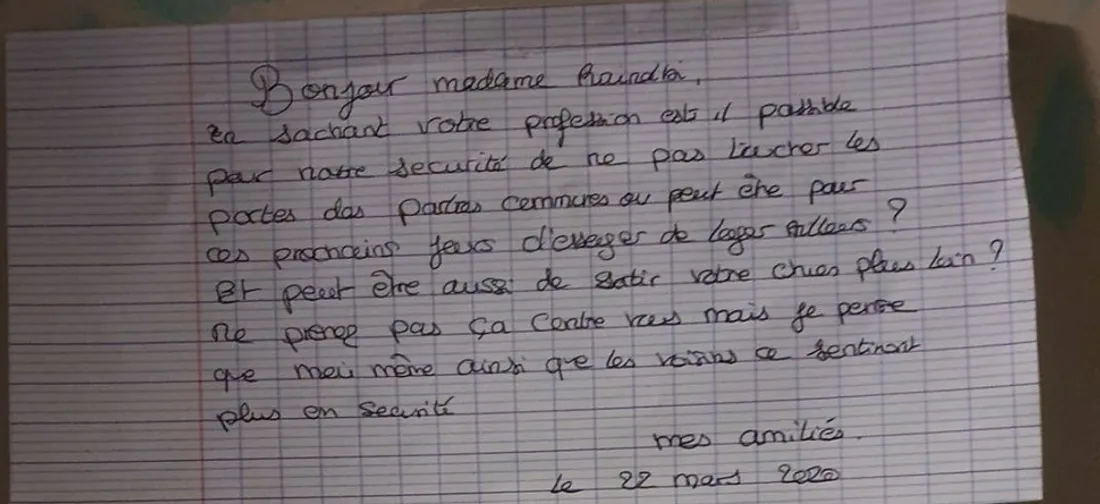 Bonjour madame
en sachant votre profession est il possible
par notre securité de ne pas toucher les
portes des parties communes ou peut être pour
ces prochains jours d'essayer de loger ailleurs ?
Et peut être aussi de sortir votre chien plus loin ?
ne prenez pas ça contre vous mais je pense
que moi même ainsi que les voisins ce sentiront
plus en securité
mes amitiés.
le 22 mars 2020